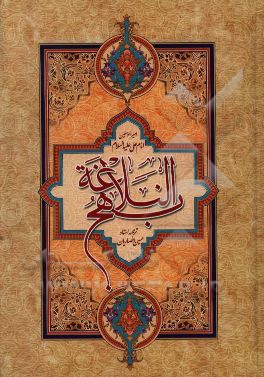 امیرالمؤمنین
امام علی علیه السلام
نهج البلاغة
ترجمه استاد
حسین انصاریان